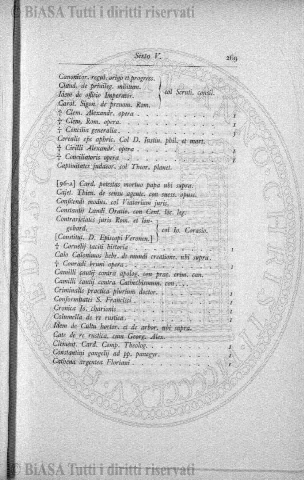 © BiASA Tutti i diritti riservati
Sexto V. 269
Canonicor. regul. origo et progress.
Claud. de privileg. militum.
Idem de officio Imperator. } col Scruti. consil.
Carol. Sigon. de provom. Rom.
½ Clem. Alexandr. opera 1
½ Clem. Rom. opera 1
½ Concilia generalia 1
Cerealis epi aphric. Col D. Justin. phil. et mart.
½ Cirilli Alexandr. opera 1
½ Conciliatoris opera 1
Captivitates judaeor. col Thear. planet.
[96-a] Card. potestas mortuo papa ubi supra.
Cajet. Thien. de sensu agente. con mess. opusc.
Conficiendi modus. col Victorium juris.
Constantii Landi Oratio. con Cent. lic. leg.
Contrarietates juris Rom. et lon-
gobard. } col Io. Corasio.
[Constitut. D. Episcopi Veronen.]
½ Cornelij taciti historia 1
Calo Calonimos hebr. de mundi creatione. ubi supra.
½ Conradi bruni opera 1
Camilli cautij contra apolog. con prae. erem. can.
Camilli cautij contra Catechismum. con
Criminalis practica plurium doctor. 1
Conformitates S. Francisci 1
Cronica Io. charionis 1
Columella de re rustica 1
Idem de Cultu hortor. et de arbor. ubi supra.
Cato de re rustica. cum Georg. Alex. 1
Clement. Card. Comp. Theolog. 1
Constantini gangelij ad pp. panegyr. 1
Cathena argentea Floriani 1
© BiASA Tutti i diritti riservati